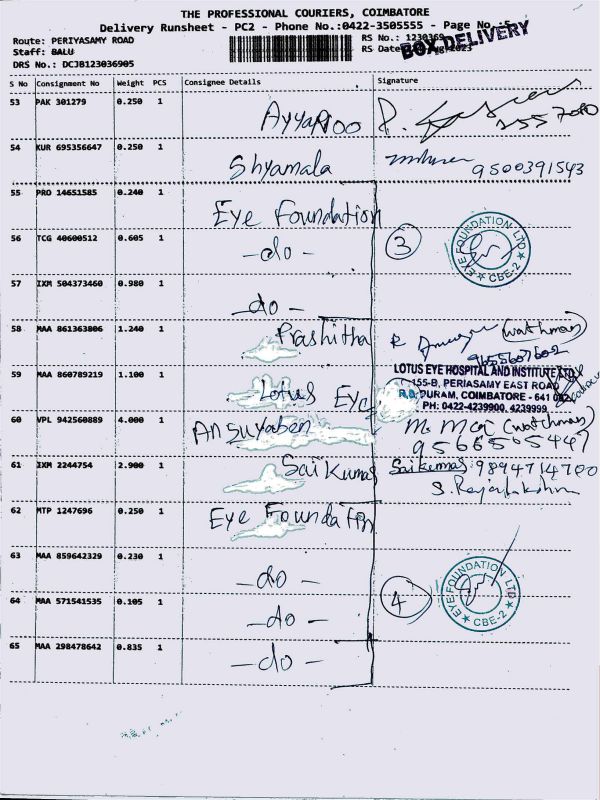 THE PROFESSIONAL COURIERS, COIMBATORE
Delivery Runsheet - PC2 - Phone No.:0422-3505555 - Page No.:5
Route: PERIYASAMY ROAD
RS No.: 1230369
BOX DELIVERY
Staff: BALU
RS Date
DRS No.: DCJB123036905
S No Consignment No Weight PCS Consignee Details Signature
53 PAK 301279 0.250 1 Ayyapoo
54 KUR 695356647 0.250 1 Shyamala 9500391543
55 PRO 14651585 0.240 1 Eye Foundation
56 TCG 40600512 0.605 1 -do- 3 EYE FOUNDATION LTD CBE-2
57 IXM 504373460 0.980 1 -do-
58 MAA 861363806 1.240 1 Prashitha (watchman)
9655607602
59 MAA 860789219 1.100 1 Lotus Eye LOTUS EYE HOSPITAL AND INSTITUTE LTD
155-B, PERIASAMY EAST ROAD
R.S. PURAM, COIMBATORE - 641 002
PH: 0422-4239900, 4239999
60 VPL 942560889 4.000 1 Ansuyaben M. Mca (watchman)
9566565447
61 IXM 2244754 2.900 1 Sai Kumar Saikumar 9894714700
62 MTP 1247696 0.250 1 Eye Foundation
63 MAA 859642329 0.230 1 -do-
64 MAA 571541535 0.105 1 -do- 4 EYE FOUNDATION LTD CBE-2
65 MAA 298478642 0.835 1 -do-